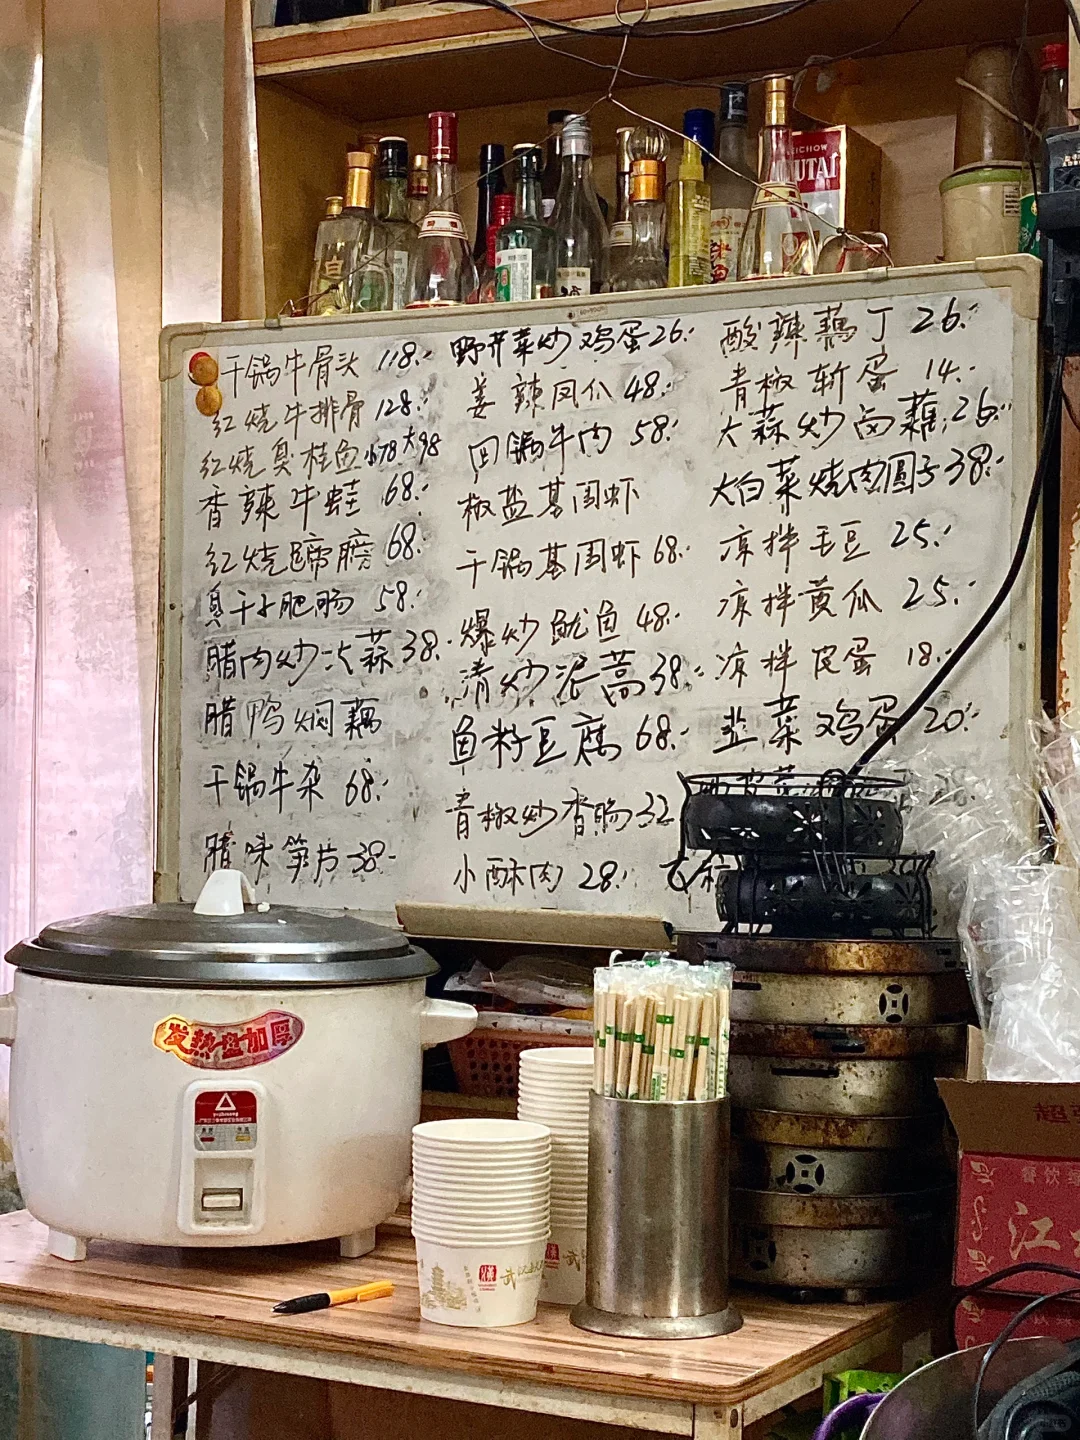 干锅牛骨头 118.
红烧牛排骨 128.
红烧臭桂鱼 小78 大98
香辣牛蛙 68.
红烧蹄膀 68.
臭干子肥肠 58.
腊肉炒大蒜 38.
腊鸭焖藕
干锅牛杂 68.
腊味笋片 38-
野芹菜炒鸡蛋 26.
姜辣凤爪 48.
回锅牛肉 58.
椒盐基围虾
干锅基围虾 68.
爆炒鱿鱼 48.
清炒泥蒿 38.
鱼籽豆腐 68.
青椒炒香肠 32
小酥肉 28.
酸辣藕丁 26.
青椒斩蛋 14.
大蒜炒卤藕 26.
大白菜烧肉圆子 38.
凉拌毛豆 25.
凉拌黄瓜 25.
凉拌皮蛋 18.
韭菜鸡蛋 20.
UTAI
发热盘加厚
江